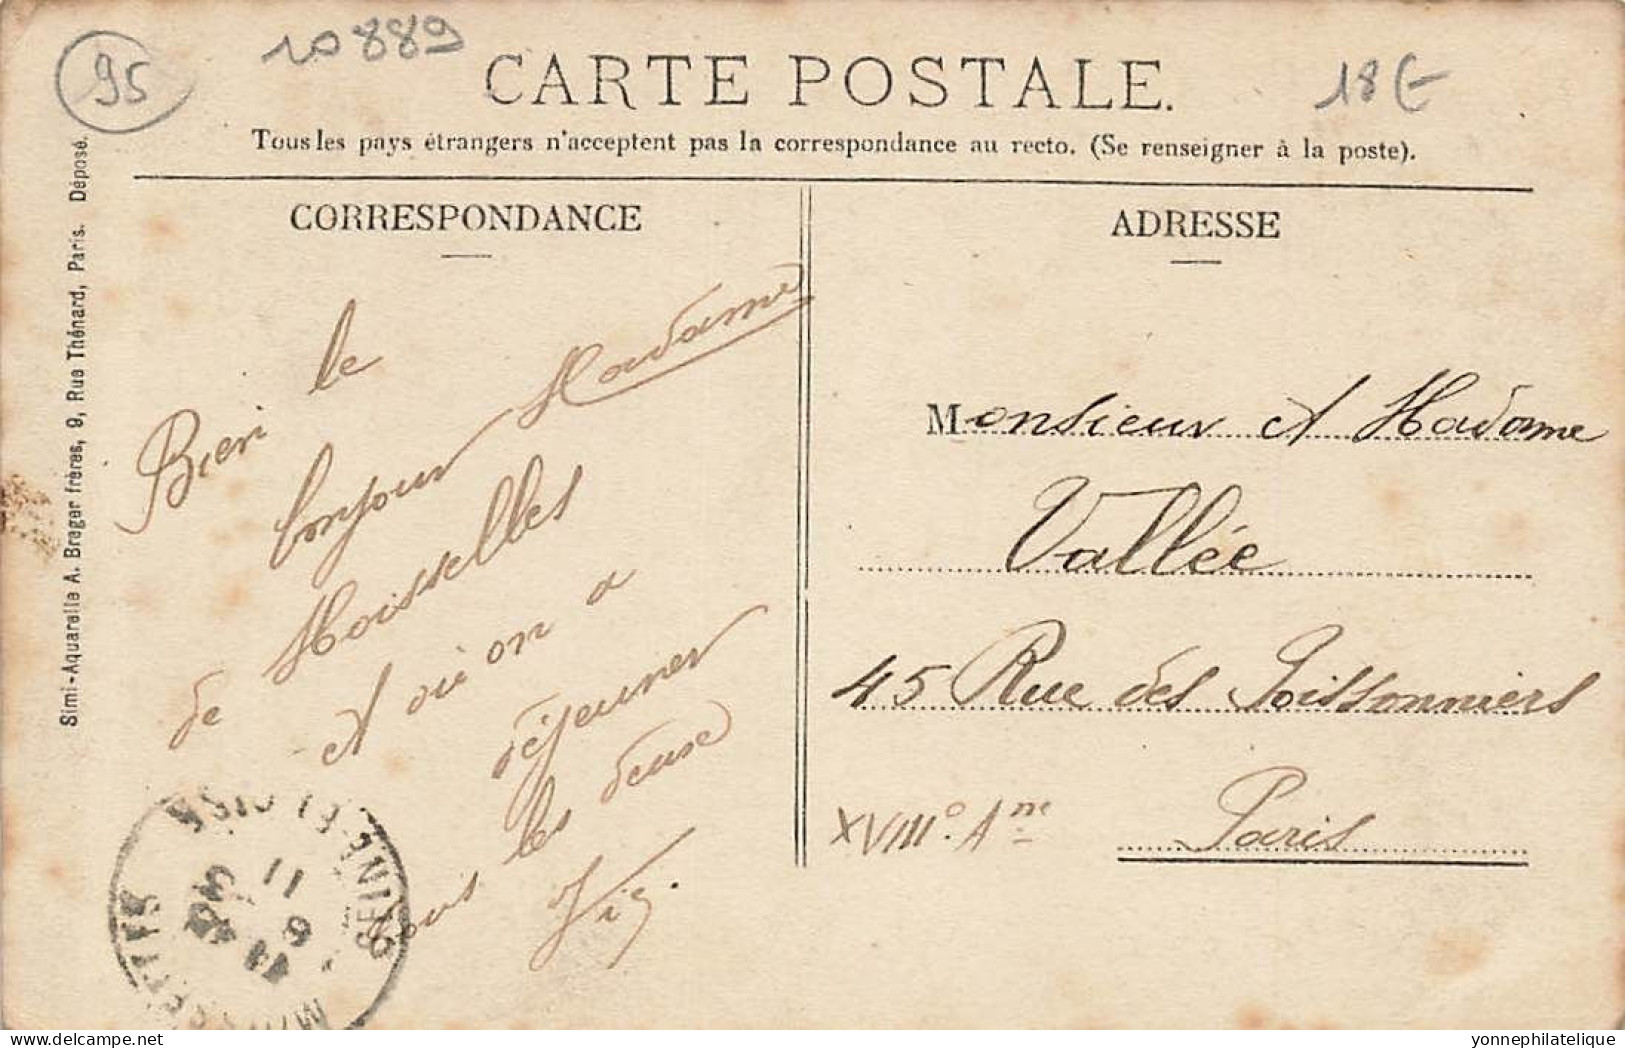 95
10889
18€
CARTE POSTALE.
Tous les pays étrangers n'acceptent pas la correspondance au recto. (Se renseigner à la poste).
CORRESPONDANCE
ADRESSE
Simi-Aquarelle A. Breger frères, 9, Rue Thénard, Paris. Déposé.
Bien le
bonjour Madame
de Moisselles
et où on a
déjeuner
tous les deuse
Vig.
Monsieur et Madame
Vallée
45 Rue des Poissonniers
XVIII° Ane
Paris
SEINE-ET-OISE
11
6
yonnephilatelique